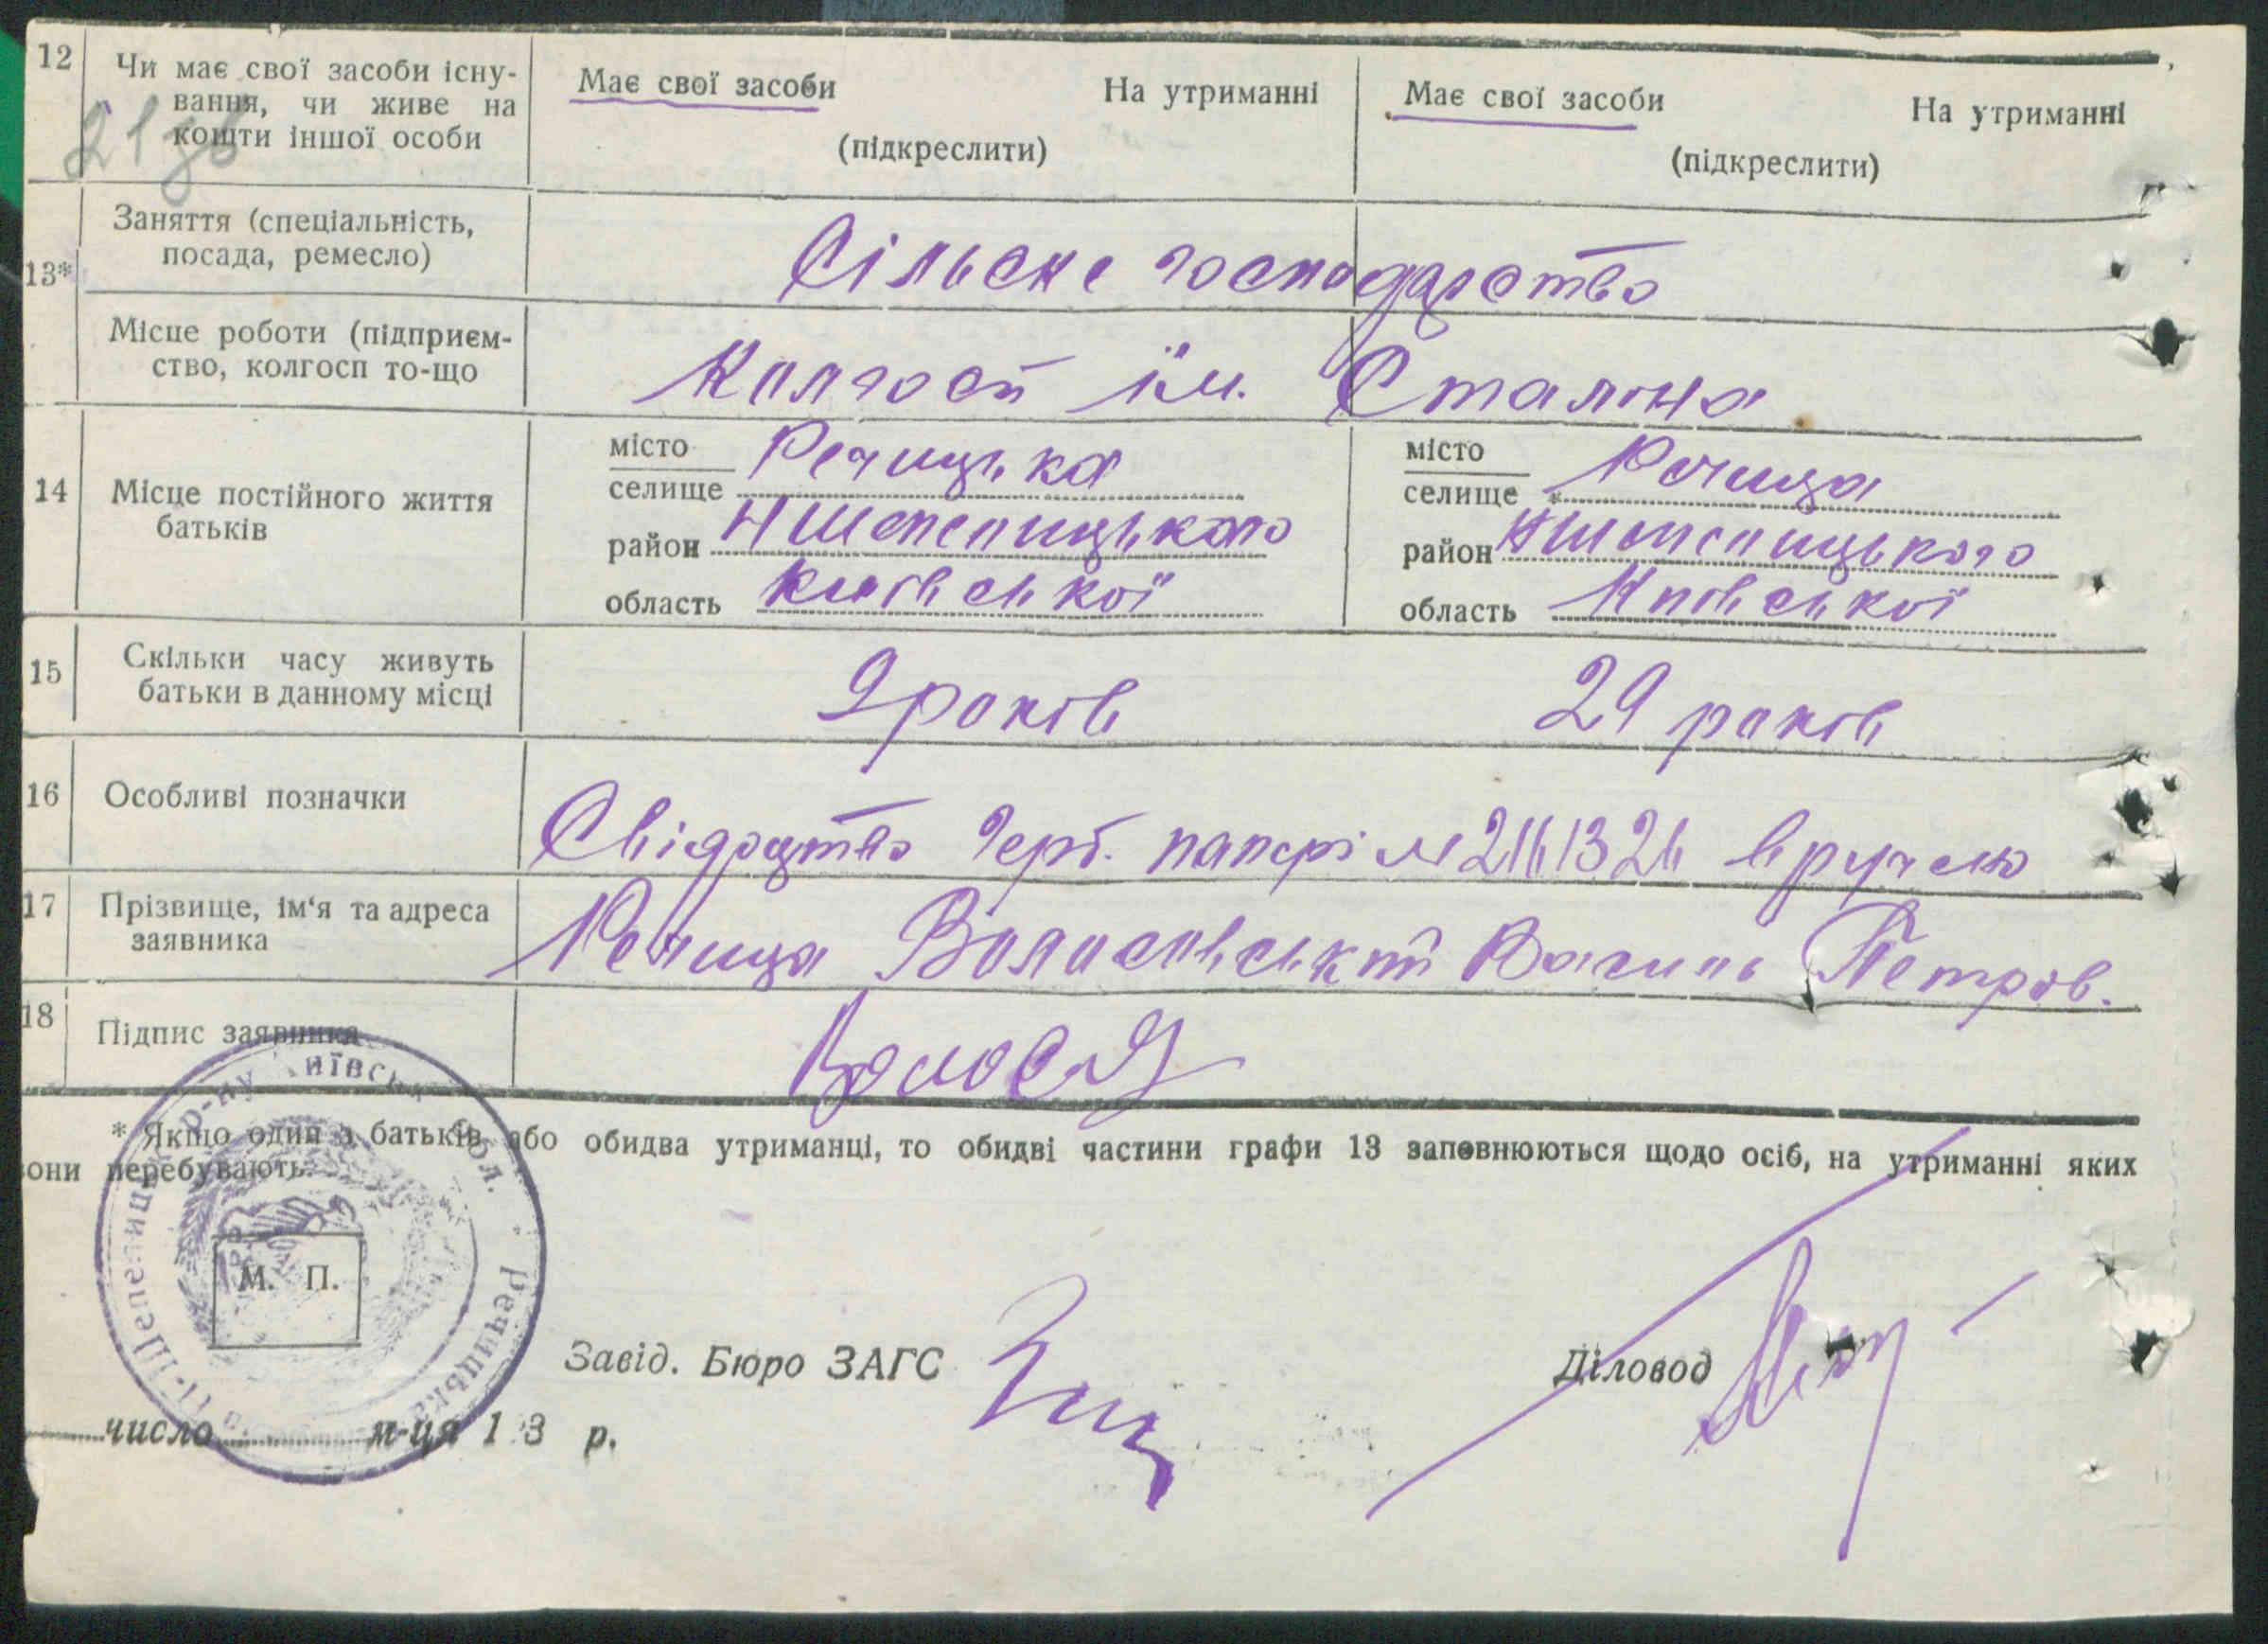 12 Чи має свої засоби існу-
вання, чи живе на
кошти іншої особи
Має свої засоби На утриманні
(підкреслити)
Має свої засоби На утриманні
(підкреслити)
21 зв
13* Заняття (спеціальність,
посада, ремесло)
Сільске господарство
Місце роботи (підприєм-
ство, колгосп то-що
Колгосп ім. Сталіна
14 Місце постійного життя
батьків
місто
селище Речицька
район НШепелицького
область Київської
місто
селище Речица
район НШепелицького
область Київської
15 Скільки часу живуть
батьки в данному місці
9 років 29 років
16 Особливі позначки
Свідоцтво Герб. папері вручено
17 Прізвище, ім‘я та адреса
заявника
Речица Петров.
18 Підпис заявника
* Якщо один з батьків або обидва утриманці, то обидві частини графи 13 заповнюються щодо осіб, на утриманні яких
вони перебувають.
Н-Шепелицьк. р-ну Київськ. обл. Речицька
М. П.
Завід. Бюро ЗАГС
Діловод
число м-ця 1 3 р.